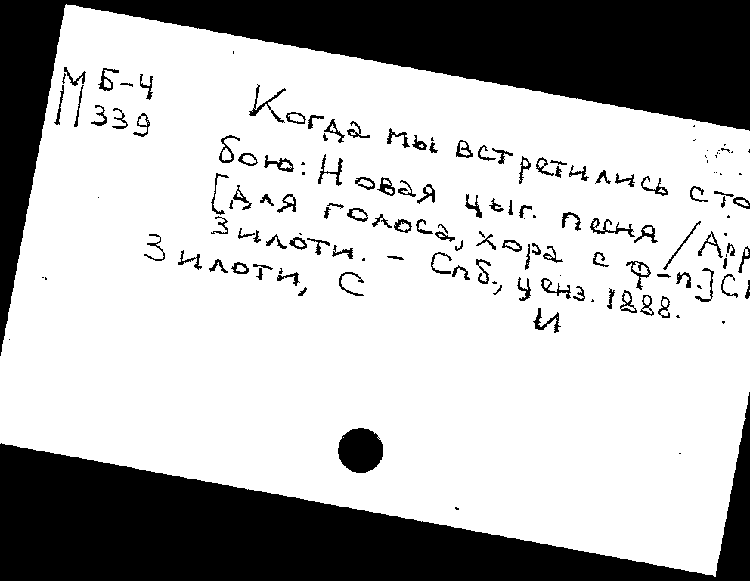 М Б-4
339
Когда мы встретились с то
бою: Новая цыг. песня / Арр
[для голоса, хора с ф-п.] С.
Зилоти. - Спб., ценз. 1888.
Зилоти, С
И